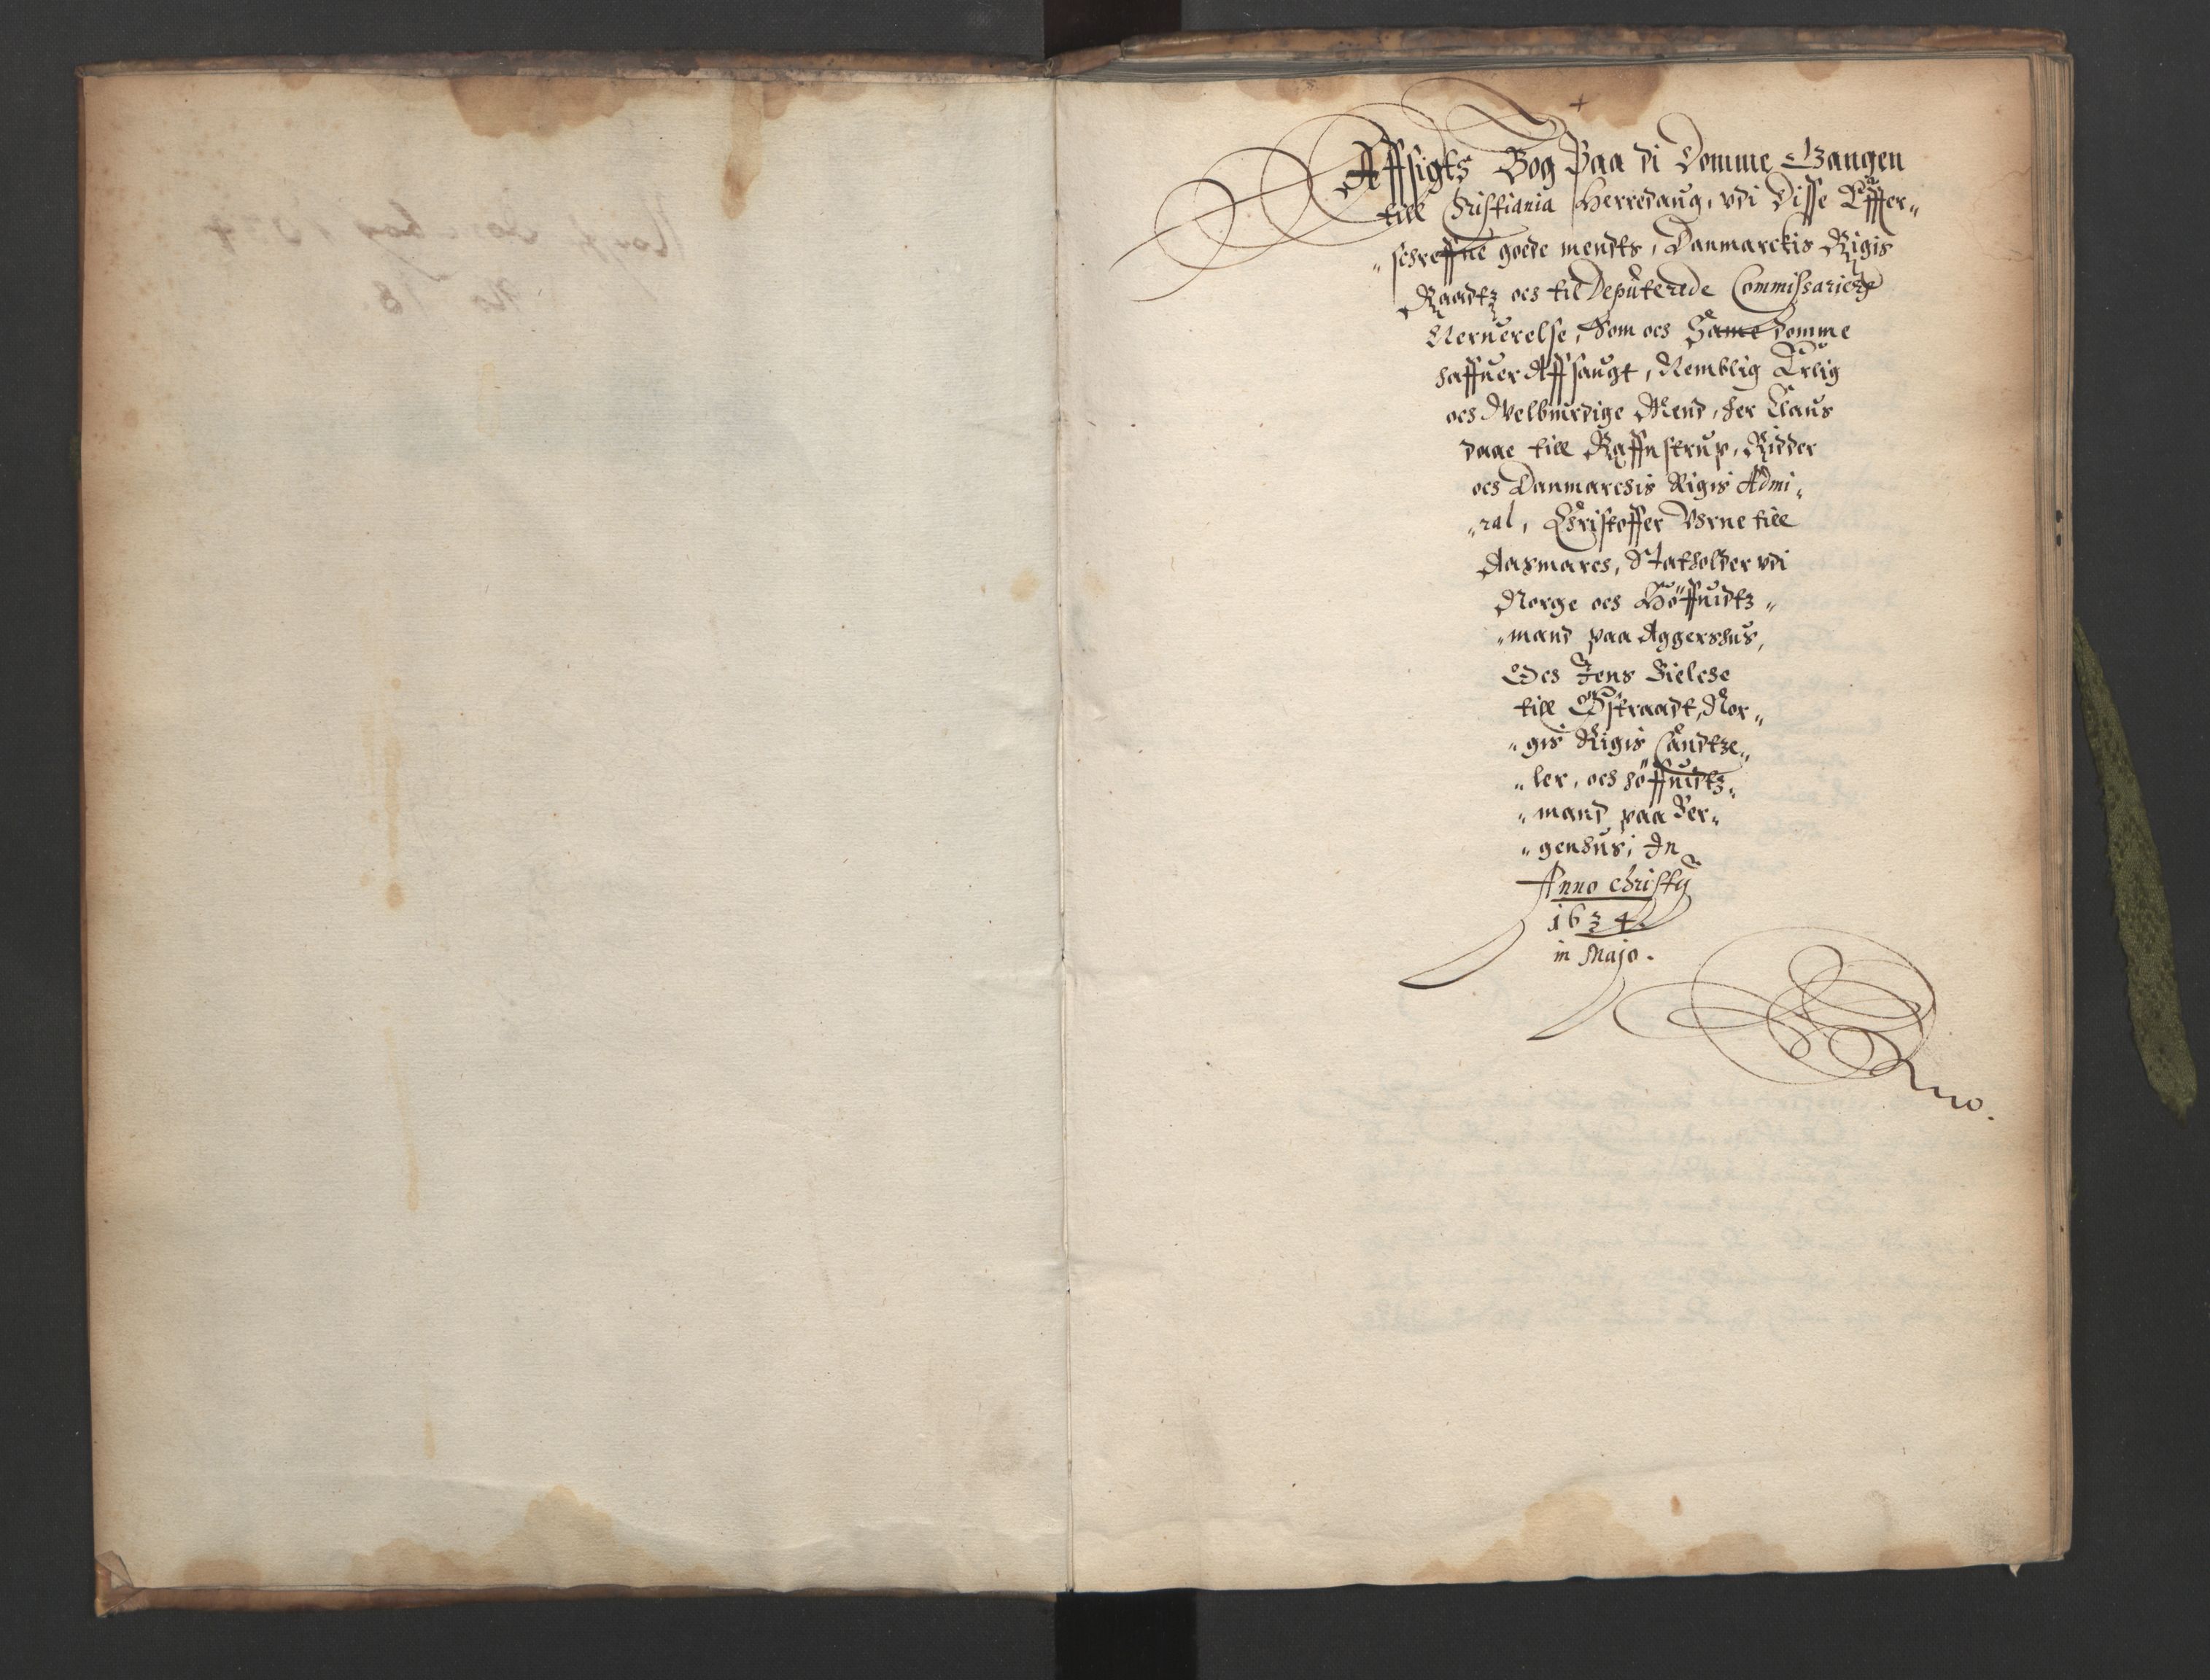 Affsigts Bog Paa di Domme Gangen
till Christiania Herredaug, vdi Disse Effter„
„schreffne goede mendts, Danmarckis Rigis
Raadtz och til Deputerede Commissarierge
Neruerelse, Som och Same Domme
haffuer Affsaugt, Nemblig Erlig
och Welburdige Mend, Her Claus
Daae till Raffnstrup, Ridder
och Danmarchis Rigis Admi„
„ral, Christoffer Vrne till
Aasmarch, Statholder vdi
Norge och Höffuidtz„
„mand paa Aggershus,
Och Jens Bielche
till Östraadt, Nor„
„gis Rigis Candtze„
„ler, och höffuidtz„
„mand paa Ber„
„genhus, In
Anno christy
1634.
in Majo.